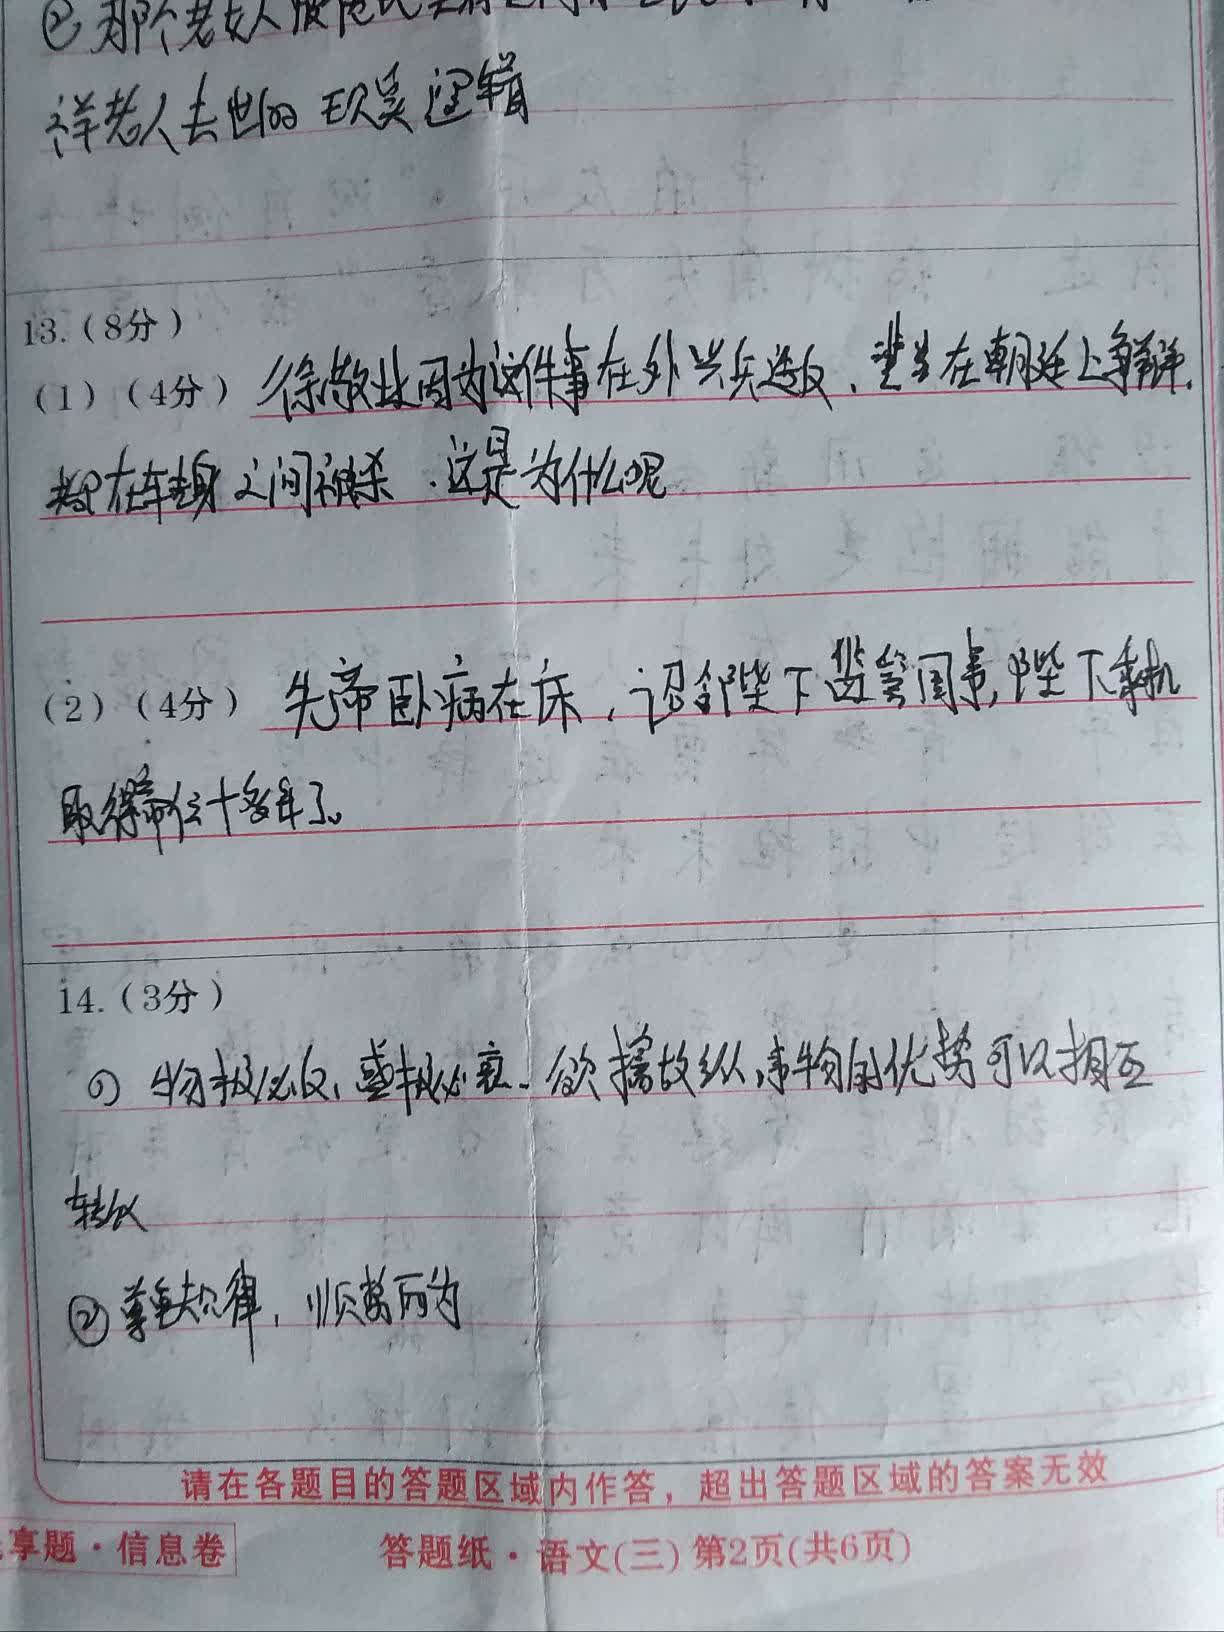 ② 那个老女人被
祥老人去世的现实逻辑
13.（8分）
（1）（4分）徐敬业因为这件事在外兴兵造反，当在朝廷上争辩，
却在转身之间被杀．这是为什么呢
（2）（4分）先帝卧病在床，诏令陛下监管国事，陛下乘机
取得帝位十多年了。
14.（3分）
① 物极必反，盛极必衰、欲擒故纵，事物的优势可以相互
转化
② 尊重规律，顺势而为
请在各题目的答题区域内作答，超出答题区域的答案无效
享题·信息卷
答题纸·语文(三) 第2页(共6页)